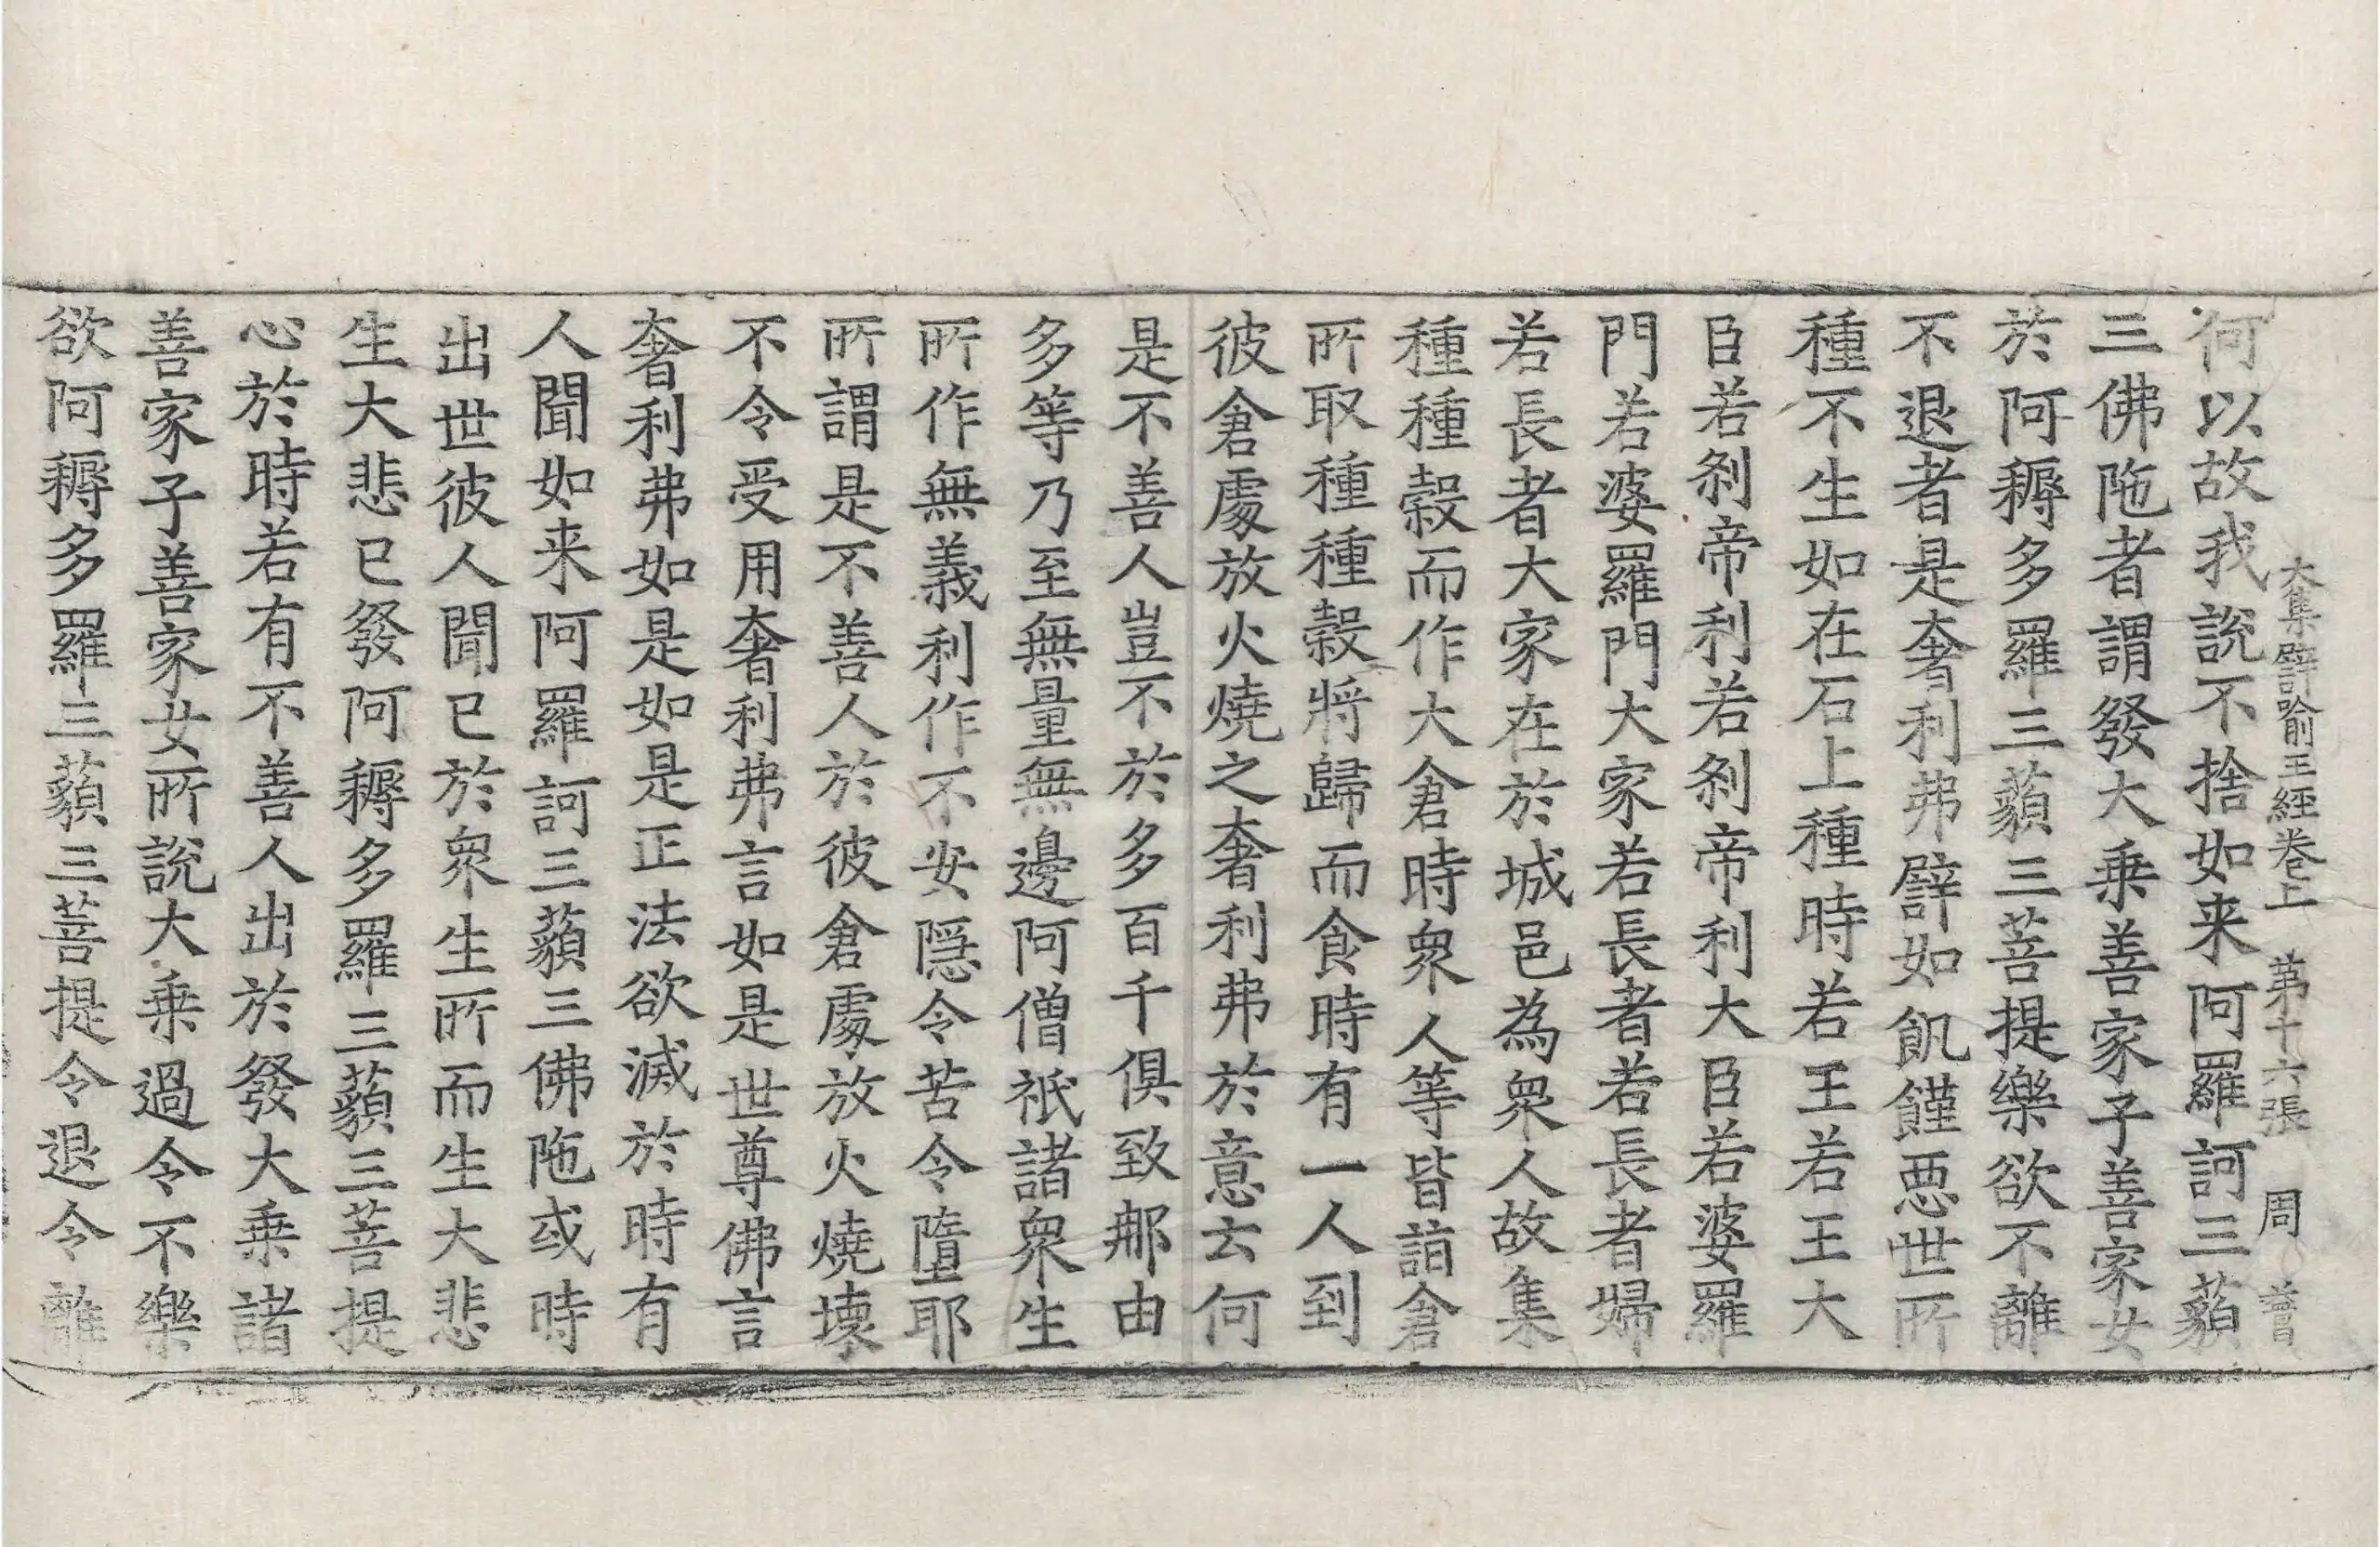 大集譬喻王經卷上　第十六張　周
何以故我說不捨如来阿羅訶三藐
三佛陁者謂發大乗善家子善家女
於阿耨多羅三藐三菩提樂欲不離
不退者是奢利弗譬如飢饉惡世所
種不生如在石上種時若王若王大
臣若刹帝利若刹帝利大臣若婆羅
門若婆羅門大家若長者若長者婦
若長者大家在於城邑為衆人故集
種種穀而作大倉時衆人等皆詣倉
所取種種穀將歸而食時有一人到
彼倉處放火燒之奢利弗於意云何
是不善人豈不於多百千俱致那由
多等乃至無量無邊阿僧祇諸衆生
所作無義利作不安隱令苦令墮耶
所謂是不善人於彼倉處放火燒壞
不令受用奢利弗言如是世尊佛言
奢利弗如是如是正法欲滅於時有
人聞如来阿羅訶三藐三佛陁或時
出世彼人聞已於衆生所而生大悲
生大悲已發阿耨多羅三藐三菩提
心於時若有不善人出於發大乗諸
善家子善家女所說大乗過令不樂
欲阿耨多羅三藐三菩提令退令離